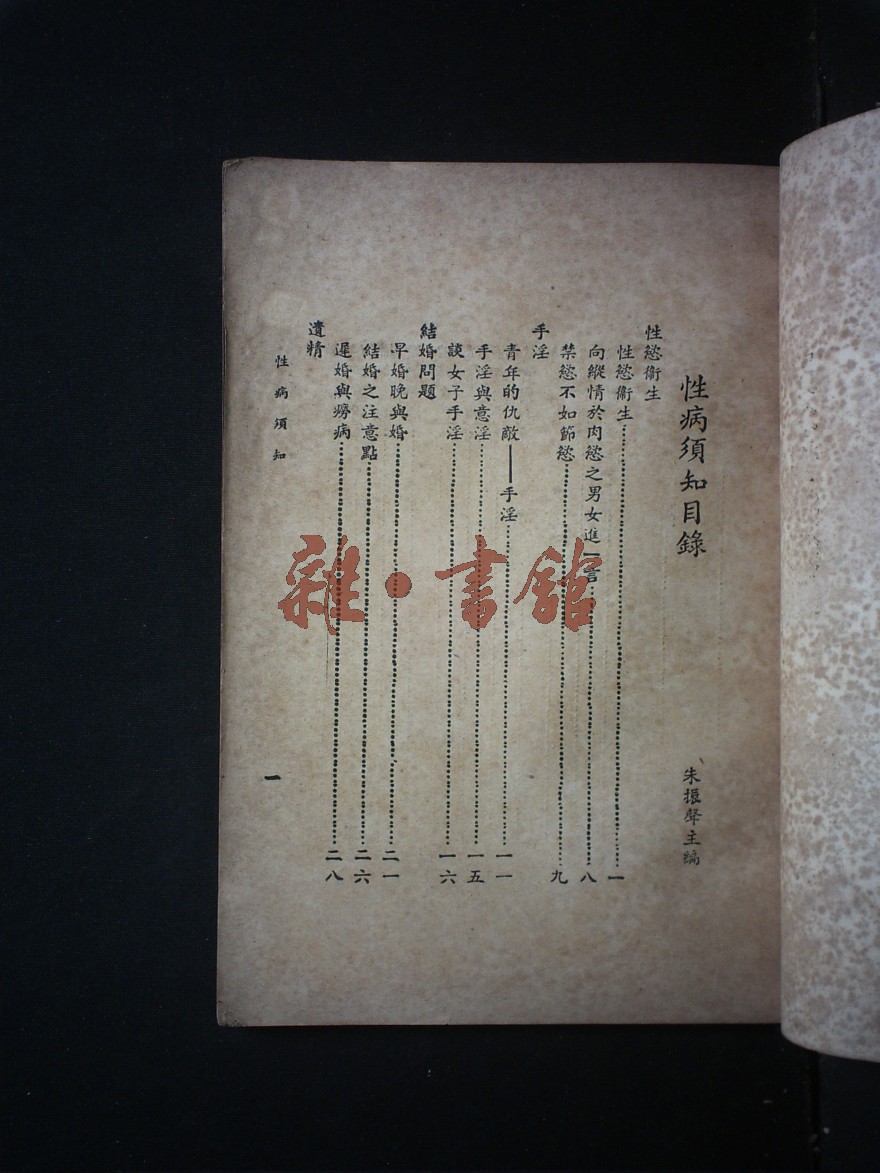 性病須知目錄
朱振聲主編
性慾衞生
性慾衞生……一
向縱情於肉慾之男女進一言……八
禁慾不如節慾……九
手淫
青年的仇敵——手淫……一一
手淫與意淫……一五
談女子手淫……一六
結婚問題
早婚晚與婚……二一
結婚之注意點……二六
遲婚與癆病……二八
遺精
性病須知
一
雜·書館